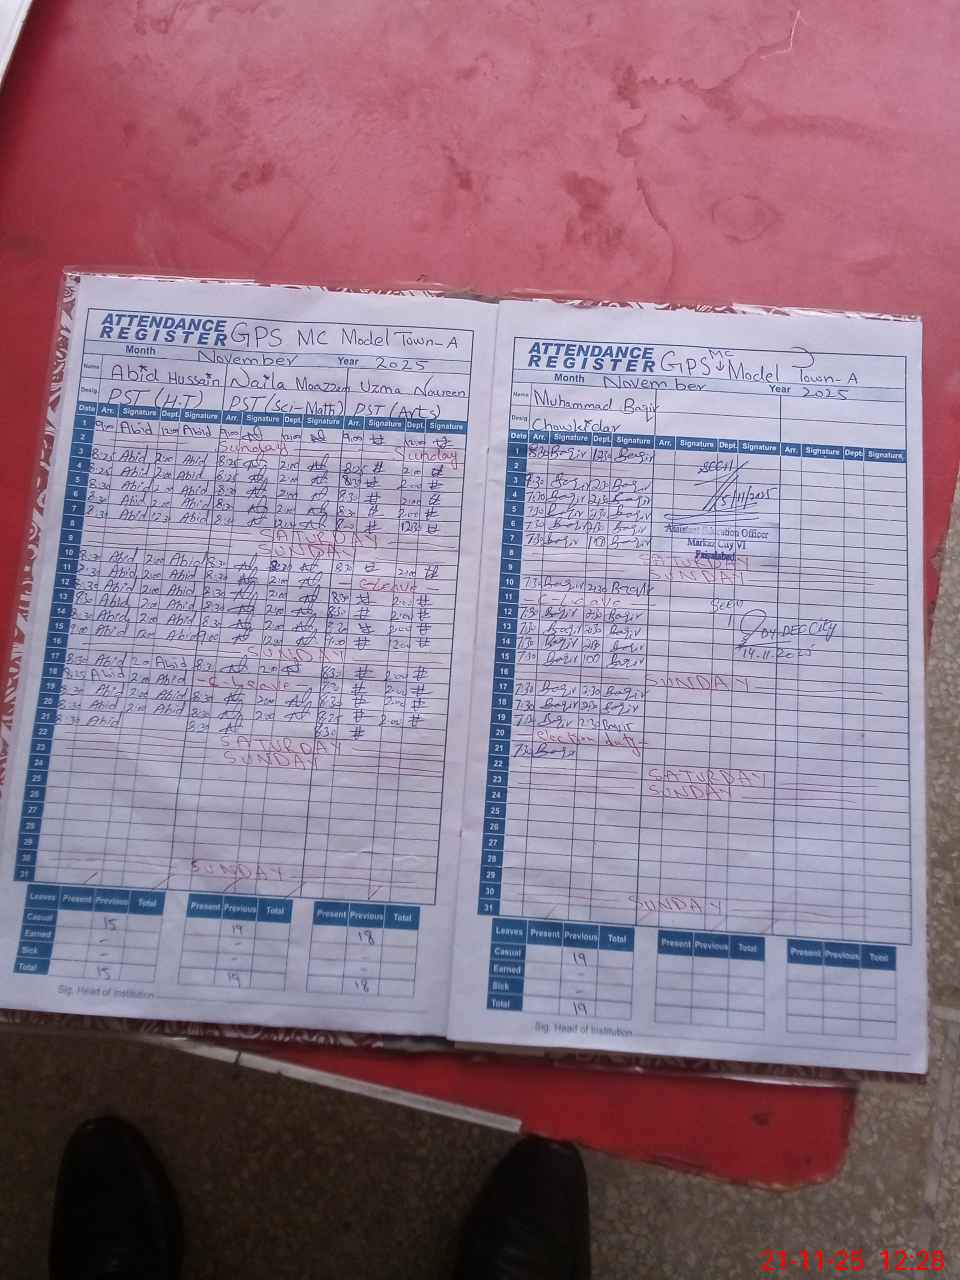 ATTENDANCE REGISTER GPS MC Model Town-A
Month November Year 2025
Name Abid Hussain Naila Moazzem Uzma Noureen
Desig. PST (H.T) PST (Sci-Math) PST (Arts)
Date Arr. Signature Dept. Signature Arr. Signature Dept. Signature Arr. Signature Dept. Signature
1 9:00 Abid 12:00 Abid 9:00 12:00 9:00 12:00
2 Sunday Sunday
3 8:25 Abid 2:00 Abid 8:25 2:00 8:25 2:00
4 8:25 Abid 2:00 Abid 8:25 2:00 8:30 2:00
5 8:30 Abid 2:00 Abid 8:30 2:00 8:30 2:00
6 8:30 Abid 2:00 Abid 8:30 2:00 8:30 2:00
7 8:30 Abid Abid 8:30 8:30 12:30
8 SATURDAY
9 SUNDAY
10 8:30 Abid 2:00 Abid 8:30 2:00 8:30 2:00
11 8:30 Abid 2:00 Abid 8:30 2:00 C-Leave
12 8:30 Abid 2:00 Abid 8:30 2:00 8:30 2:00
13 8:30 Abid 2:00 Abid 8:30 2:00 8:30 2:00
14 8:30 Abid 2:00 Abid 8:30 2:00 8:30 2:00
15 9:00 Abid 12:00 Abid 9:00 12:00 9:00 12:00
16 SUNDAY
17 8:30 Abid 2:00 Abid 8:30 2:00 8:30 2:00
18 8:25 Abid 2:00 Abid C-Leave 8:30 2:00
19 8:30 Abid 2:00 Abid 8:30 2:00 8:30 2:00
20 8:30 Abid 2:00 Abid 8:30 2:00 8:25 2:00
21 8:30 Abid 8:30 8:30
22 SATURDAY
23 SUNDAY
24
25
26
27
28
29
30 SUNDAY
31
Leaves Present Previous Total Present Previous Total Present Previous Total
Casual 15 19 18
Earned - - -
Sick - - -
Total 15 19 18
Sig. Head of Institution
ATTENDANCE REGISTER GPS MC Model Town-A
Month November Year 2025
Name Muhammad Baqir
Desig. Chowkidar
Date Arr. Signature Dept. Signature Arr. Signature Dept. Signature Arr. Signature Dept. Signature
1 8:30 Baqir 12:30 Baqir
2
3 7:30 Baqir 2:30 Baqir
4 7:30 Baqir 2:30 Baqir
5 7:30 Baqir 2:30 Baqir
6 7:30 Baqir 2:30 Baqir
7 7:30 Baqir 1:00 Baqir
seen
5/11/2025
Assistant Education Officer
Markaz City VI
Faisalabad
8 SATURDAY
9 SUNDAY
10 7:30 Baqir 2:30 Baqir
11 C-Leave
12 7:30 Baqir 2:30 Baqir
13 7:30 Baqir 2:30 Baqir
14 7:30 Baqir 2:30 Baqir
15 7:30 Baqir 1:00 Baqir
Seen
DY DEO City
14-11-2025
16 SUNDAY
17 7:30 Baqir 2:30 Baqir
18 7:30 Baqir 2:30 Baqir
19 7:30 Baqir 2:30 Baqir
20 election duty
21 7:30 Baqir
22 SATURDAY
23 SUNDAY
24
25
26
27
28
29
30 SUNDAY
31
Leaves Present Previous Total Present Previous Total Present Previous Total
Casual 19
Earned -
Sick -
Total 19
Sig. Head of Institution
21-11-25 12:28